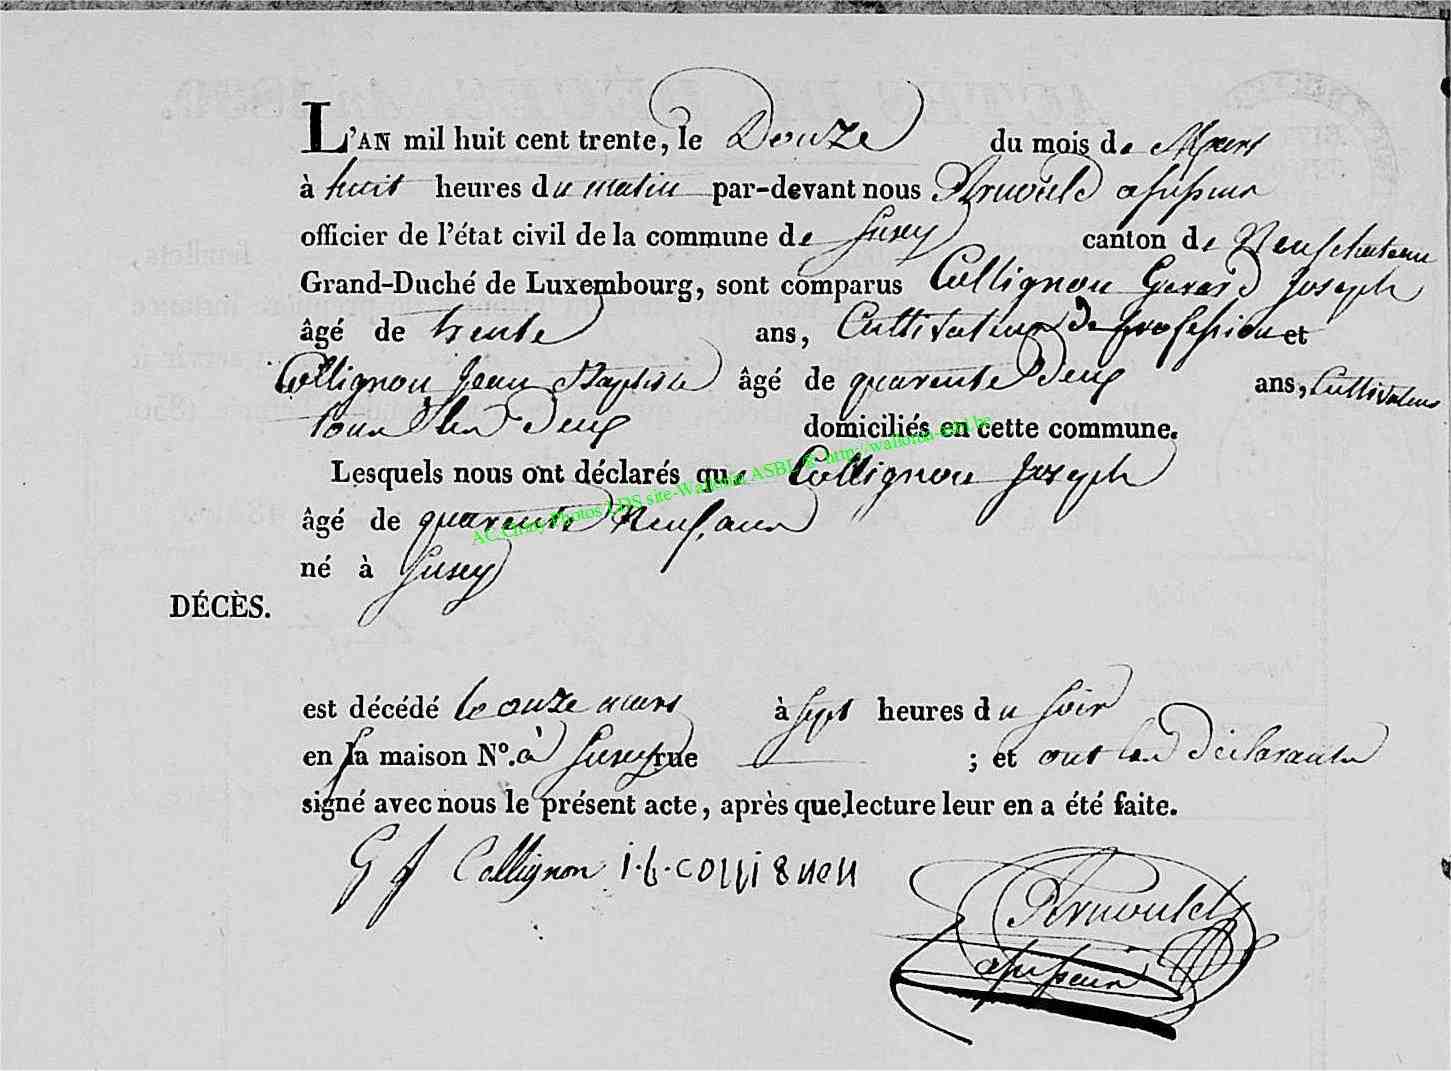 L'AN mil huit cent trente, le Douze du mois de Mars
à huit heures du matin par-devant nous Arnould assesseur
officier de l'état civil de la commune de Suxy canton de Neufchateau
Grand-Duché de Luxembourg, sont comparus Collignon Gerard Joseph
âgé de trente ans, Cultivateur de profession et
Collignon Jean Baptiste âgé de quarente Deux ans, Cultivateur
tous les Deux domiciliés en cette commune.
Lesquels nous ont déclarés que Collignon Joseph
âgé de quarente Neuf ans
né à Suxy
DÉCÈS.
est décédé le onze mars à sept heures du soir
en sa maison No. à Suxy rue ; et ont les Déclarants
signé avec nous le présent acte, après que lecture leur en a été faite.
G J Collignon j. b. collignon
Arnould
assesseur
AC Chiny Photos LDS site-Wallonia ASBL @ http:/wallonia-asbl.be